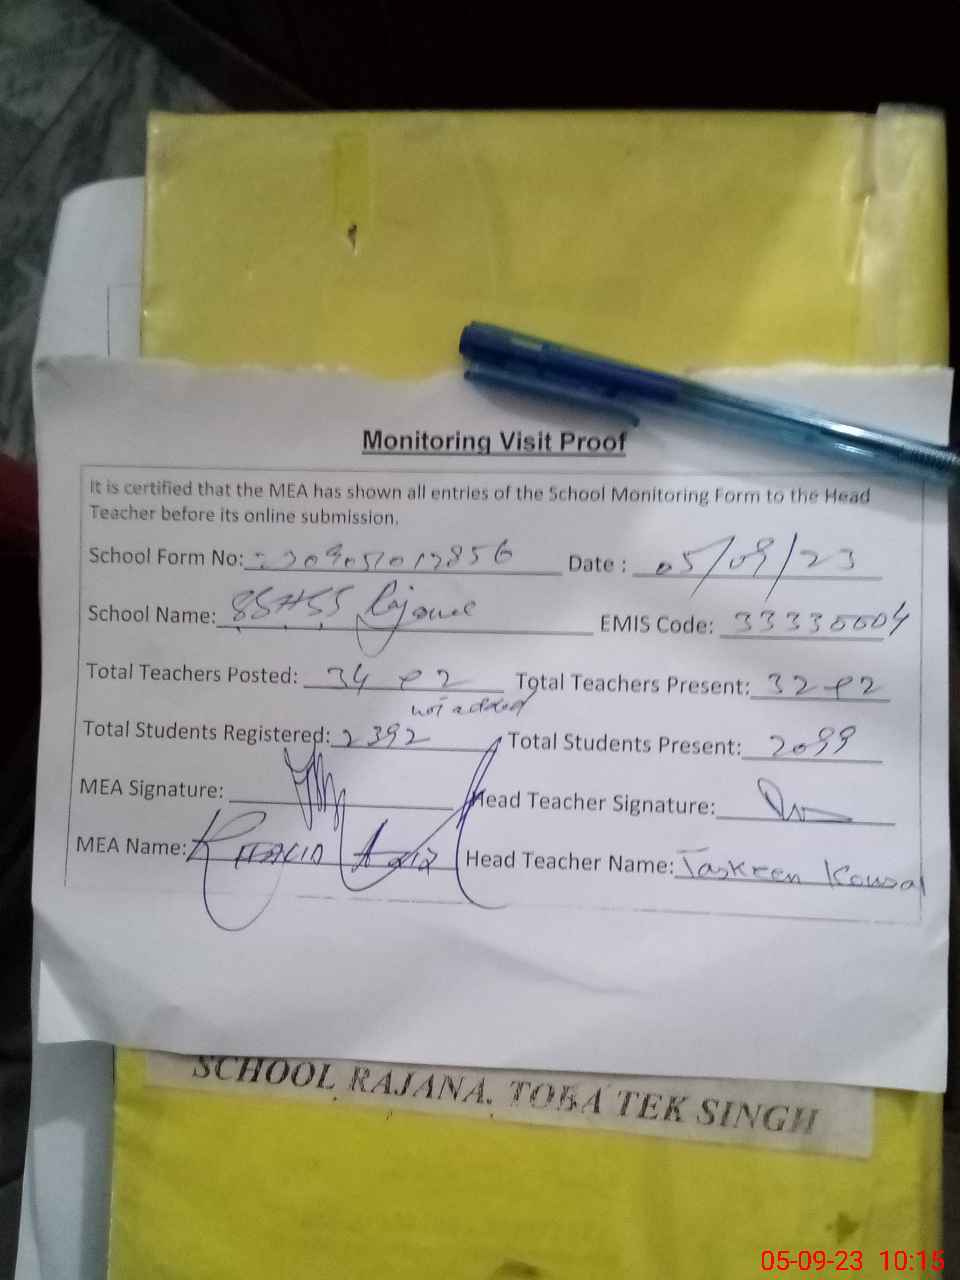 Monitoring Visit Proof
It is certified that the MEA has shown all entries of the School Monitoring Form to the Head
Teacher before its online submission.
School Form No: Date : 05/09/23
School Name: EMIS Code: 33330004
Total Teachers Posted: 34 + 2 Total Teachers Present: 32+2
not added
Total Students Registered: 2392 Total Students Present: 2099
MEA Signature: Head Teacher Signature:
MEA Name: Head Teacher Name: Taskeen Kousar
SCHOOL RAJANA. TOBA TEK SINGH
05-09-23 10:15